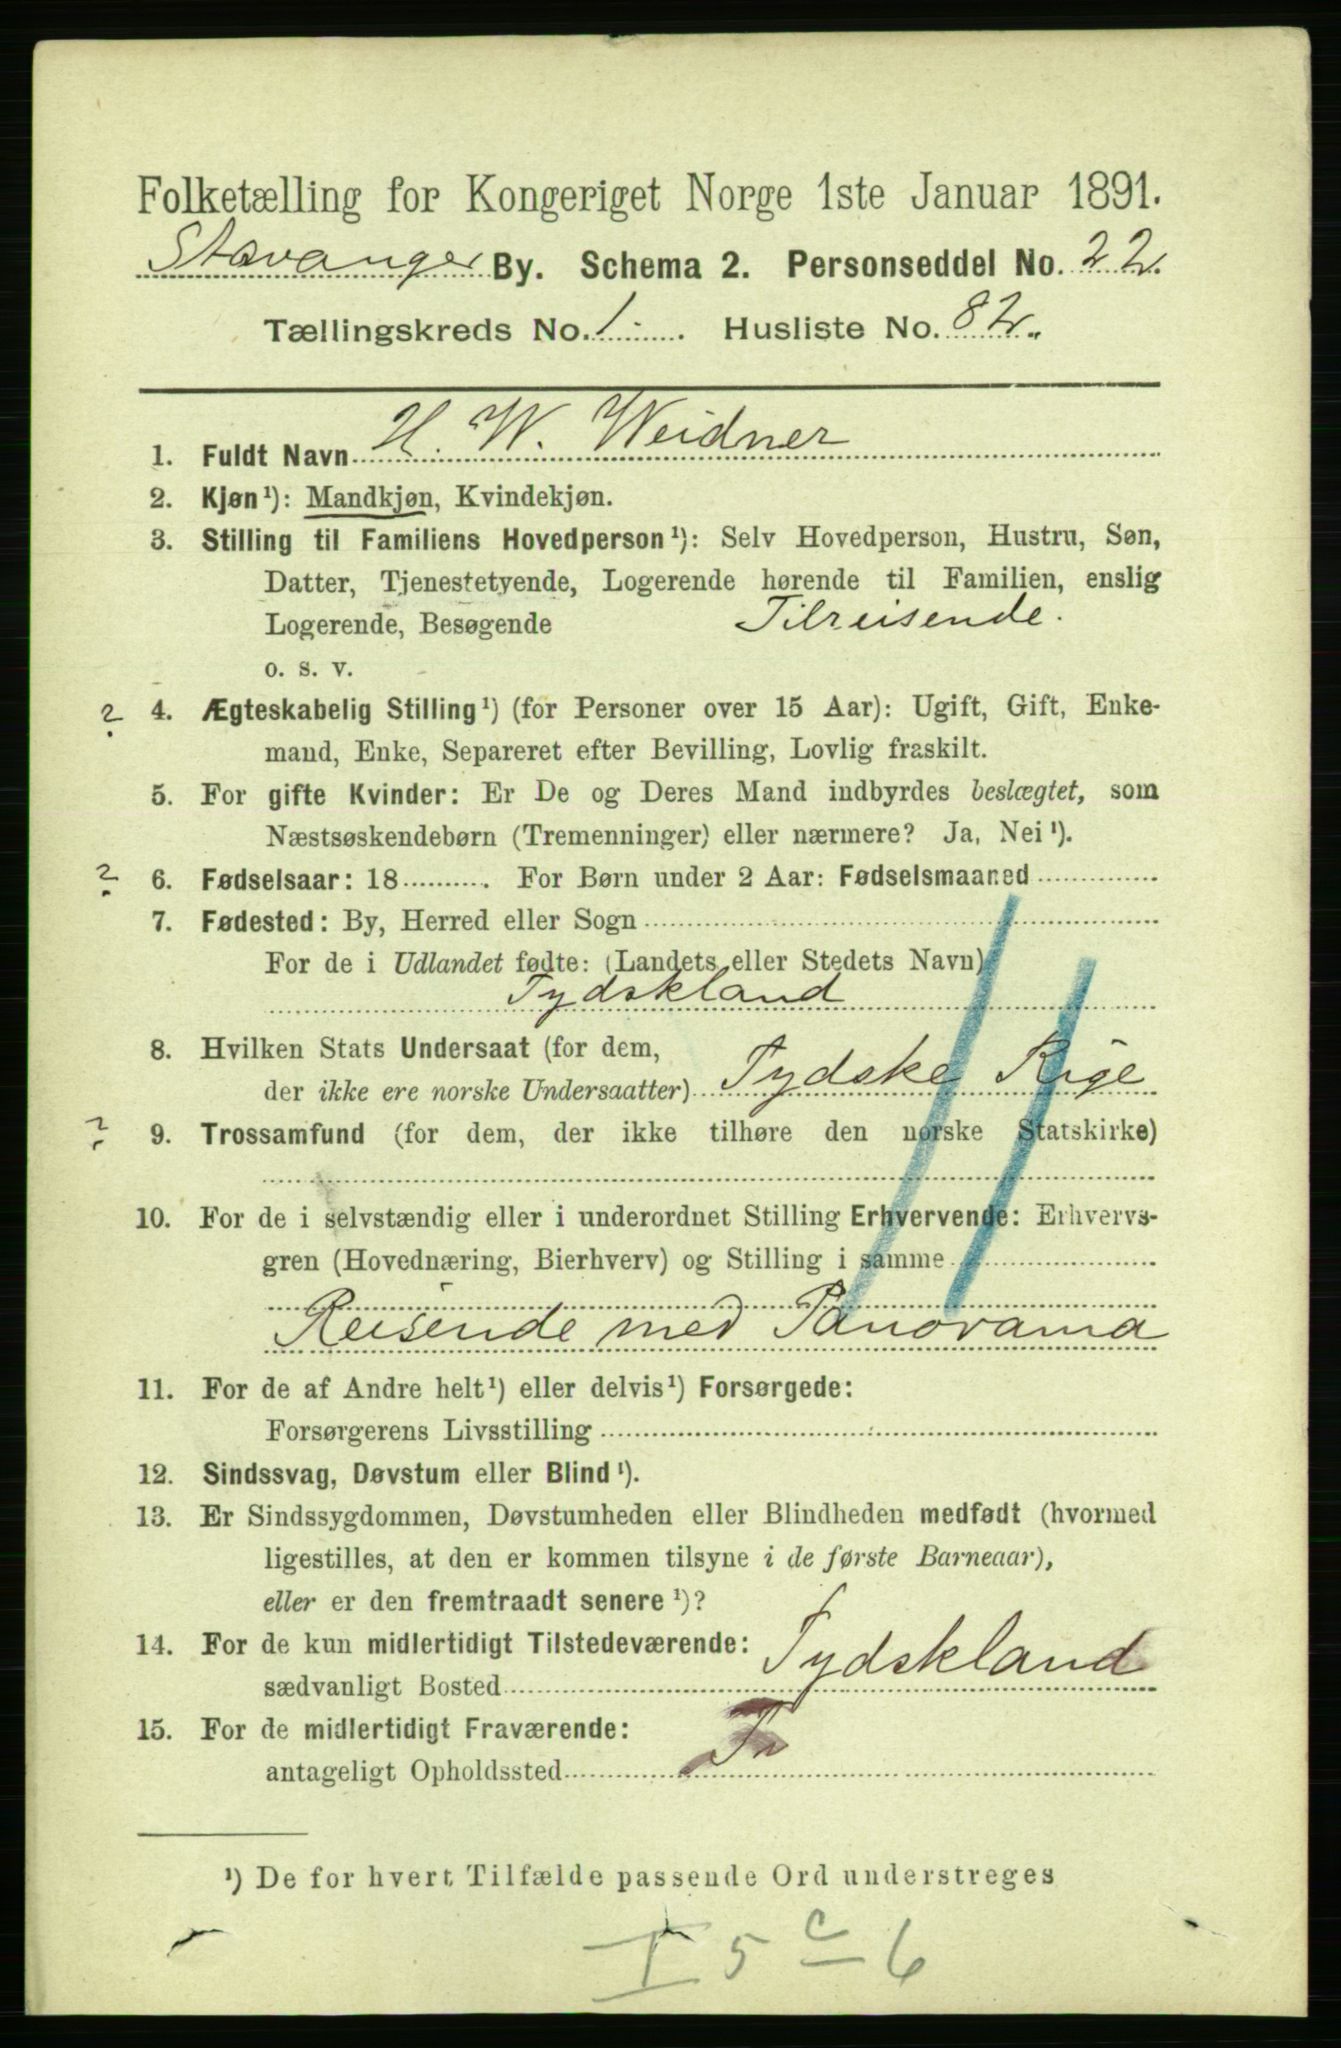 Folketælling for Kongeriget Norge 1ste Januar 1891.
Stavanger By. Schema 2. Personseddel No. 22.
Tællingskreds No. 1. Husliste No. 82.
1. Fuldt Navn H. W. Weidner
2. Kjøn¹): Mandkjøn, Kvindekjøn.
3. Stilling til Familiens Hovedperson¹): Selv Hovedperson, Hustru, Søn,
Datter, Tjenestetyende, Logerende hørende til Familien, enslig
Logerende, Besøgende Tilreisende.
o. s. v.
? 4. Ægteskabelig Stilling¹) (for Personer over 15 Aar): Ugift, Gift, Enke-
mand, Enke, Separeret efter Bevilling, Lovlig fraskilt.
5. For gifte Kvinder: Er De og Deres Mand indbyrdes beslægtet, som
Næstsøskendebørn (Tremenninger) eller nærmere? Ja, Nei¹).
? 6. Fødselsaar: 18 . For Børn under 2 Aar: Fødselsmaaned
7. Fødested: By, Herred eller Sogn
For de i Udlandet fødte: (Landets eller Stedets Navn)
Tydskland
8. Hvilken Stats Undersaat (for dem,
der ikke ere norske Undersaatter) Tydske Rige
? 9. Trossamfund (for dem, der ikke tilhøre den norske Statskirke)
10. For de i selvstændig eller i underordnet Stilling Erhvervende: Erhvervs-
gren (Hovednæring, Bierhverv) og Stilling i samme
Reisende med Panorama
11. For de af Andre helt¹) eller delvis¹) Forsørgede:
Forsørgerens Livsstilling
12. Sindssvag, Døvstum eller Blind¹).
13. Er Sindssygdommen, Døvstumheden eller Blindheden medfødt (hvormed
ligestilles, at den er kommen tilsyne i de første Barneaar),
eller er den fremtraadt senere¹)?
14. For de kun midlertidigt Tilstedeværende:
sædvanligt Bosted Tydskland
15. For de midlertidigt Fraværende:
antageligt Opholdssted
¹) De for hvert Tilfælde passende Ord understreges
I 5 c 6